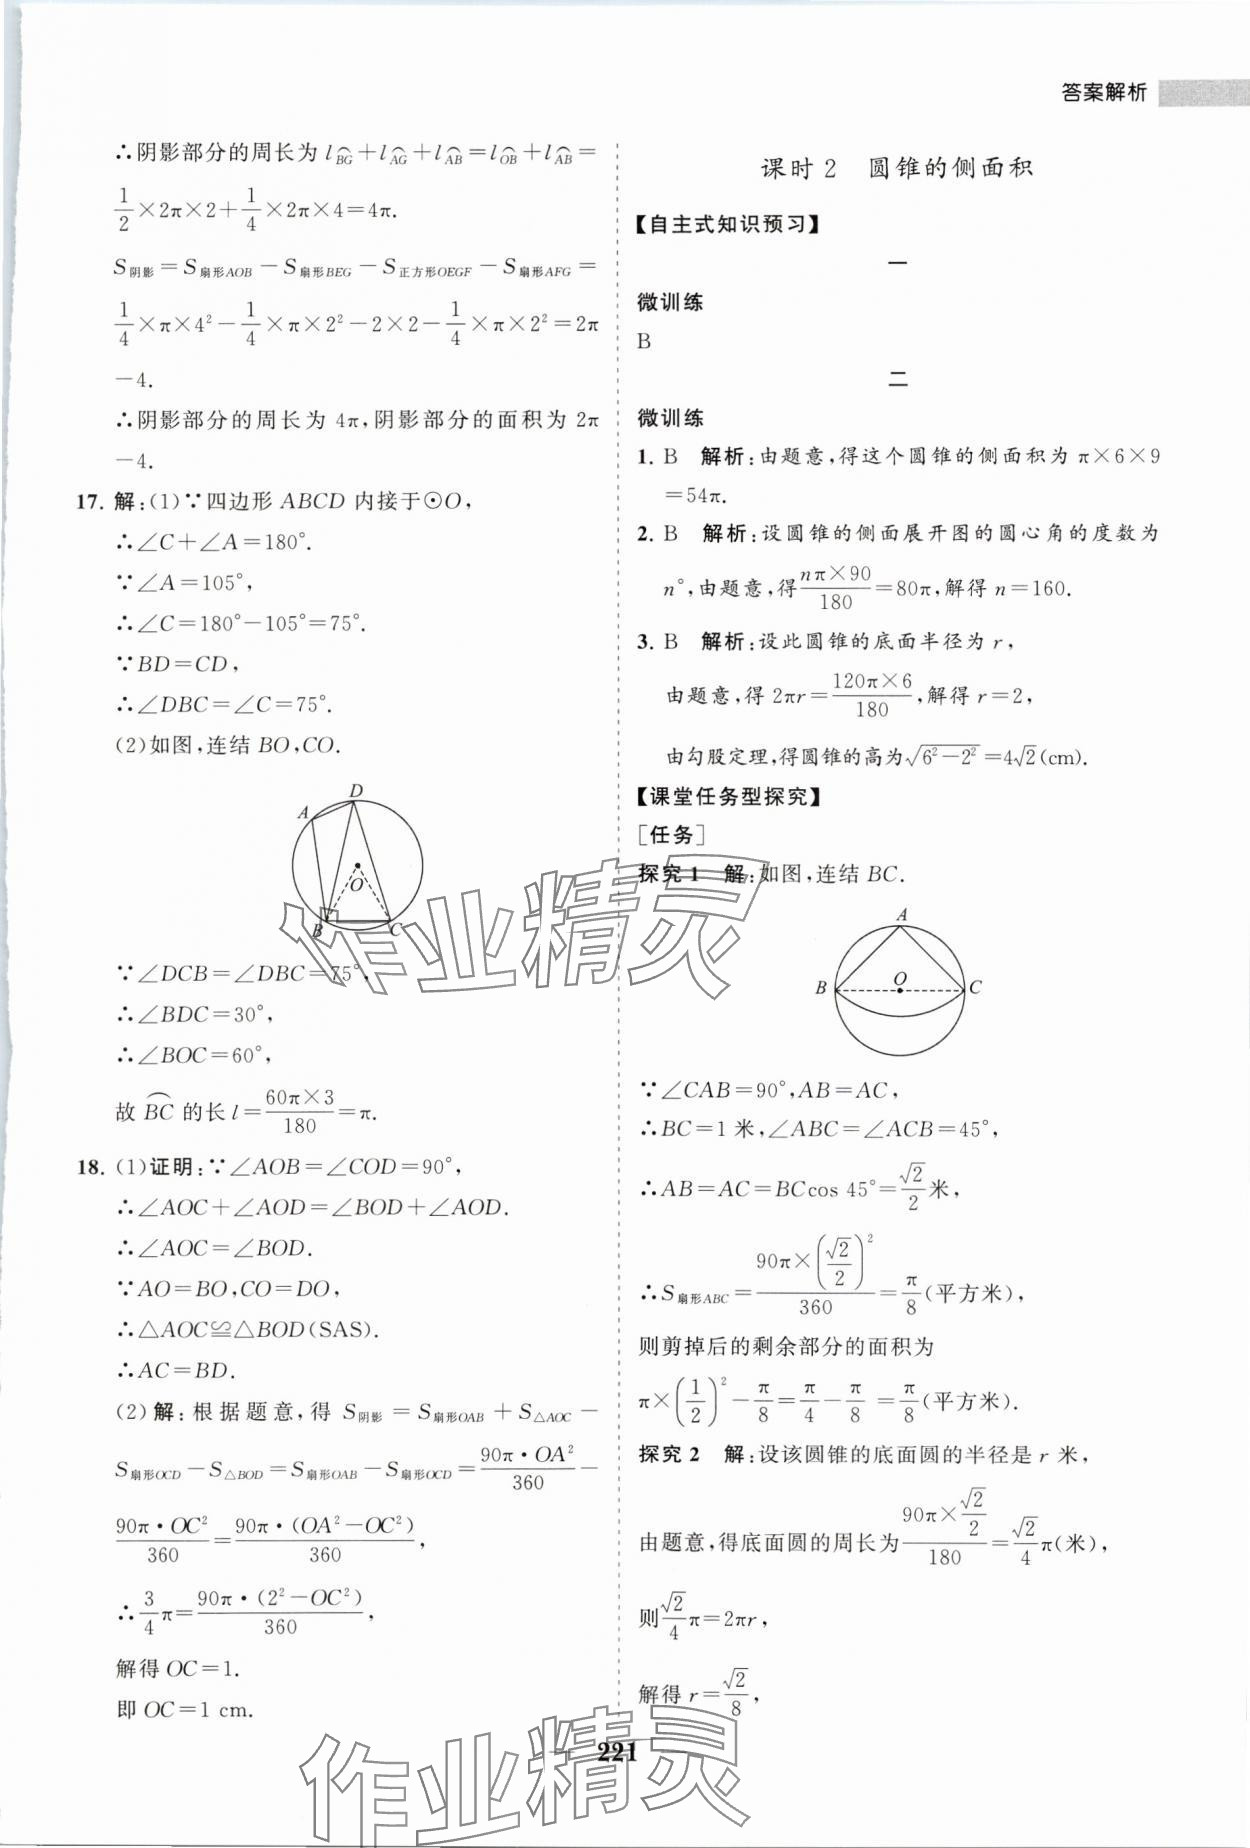 答案解析
∴阴影部分的周长为 l⌒BG+l⌒AG+l⌒AB=l⌒OB+l⌒AB=
1/2×2π×2+1/4×2π×4=4π.
S阴影=S扇形AOB－S扇形BEG－S正方形OEGF－S扇形AFG=
1/4×π×4²－1/4×π×2²－2×2－1/4×π×2²=2π
－4.
∴阴影部分的周长为 4π,阴影部分的面积为 2π
－4.
17. 解:(1)∵四边形 ABCD 内接于⊙O,
∴∠C+∠A=180°.
∵∠A=105°,
∴∠C=180°－105°=75°.
∵BD=CD,
∴∠DBC=∠C=75°.
(2)如图,连结 BO,CO.
D
A
O
B
C
∵∠DCB=∠DBC=75°,
∴∠BDC=30°,
∴∠BOC=60°,
故 ⌒BC 的长 l=60π×3/180=π.
18. (1)证明:∵∠AOB=∠COD=90°,
∴∠AOC+∠AOD=∠BOD+∠AOD.
∴∠AOC=∠BOD.
∵AO=BO,CO=DO,
∴△AOC≌△BOD(SAS).
∴AC=BD.
(2)解:根据题意,得 S阴影=S扇形OAB+S△AOC－
S扇形OCD－S△BOD=S扇形OAB－S扇形OCD=90π·OA²/360－
90π·OC²/360=90π·(OA²－OC²)/360,
∴3/4π=90π·(2²－OC²)/360,
解得 OC=1.
即 OC=1 cm.
课时 2 圆锥的侧面积
【自主式知识预习】
一
微训练
B
二
微训练
1. B 解析:由题意,得这个圆锥的侧面积为 π×6×9
=54π.
2. B 解析:设圆锥的侧面展开图的圆心角的度数为
n°,由题意,得nπ×90/180=80π,解得 n=160.
3. B 解析:设此圆锥的底面半径为 r,
由题意,得 2πr=120π×6/180,解得 r=2,
由勾股定理,得圆锥的高为√(6²－2²)=4√2(cm).
【课堂任务型探究】
[任务]
探究 1 解:如图,连结 BC.
A
B
O
C
∵∠CAB=90°,AB=AC,
∴BC=1 米,∠ABC=∠ACB=45°,
∴AB=AC=BCcos 45°=√2/2米,
∴S扇形ABC=90π×(√2/2)²/360=π/8(平方米),
则剪掉后的剩余部分的面积为
π×(1/2)²－π/8=π/4－π/8=π/8(平方米).
探究 2 解:设该圆锥的底面圆的半径是 r 米,
由题意,得底面圆的周长为90π×√2/2/180=√2/4π(米),
则√2/4π=2πr,
解得 r=√2/8,
221
作业精灵
作业精灵